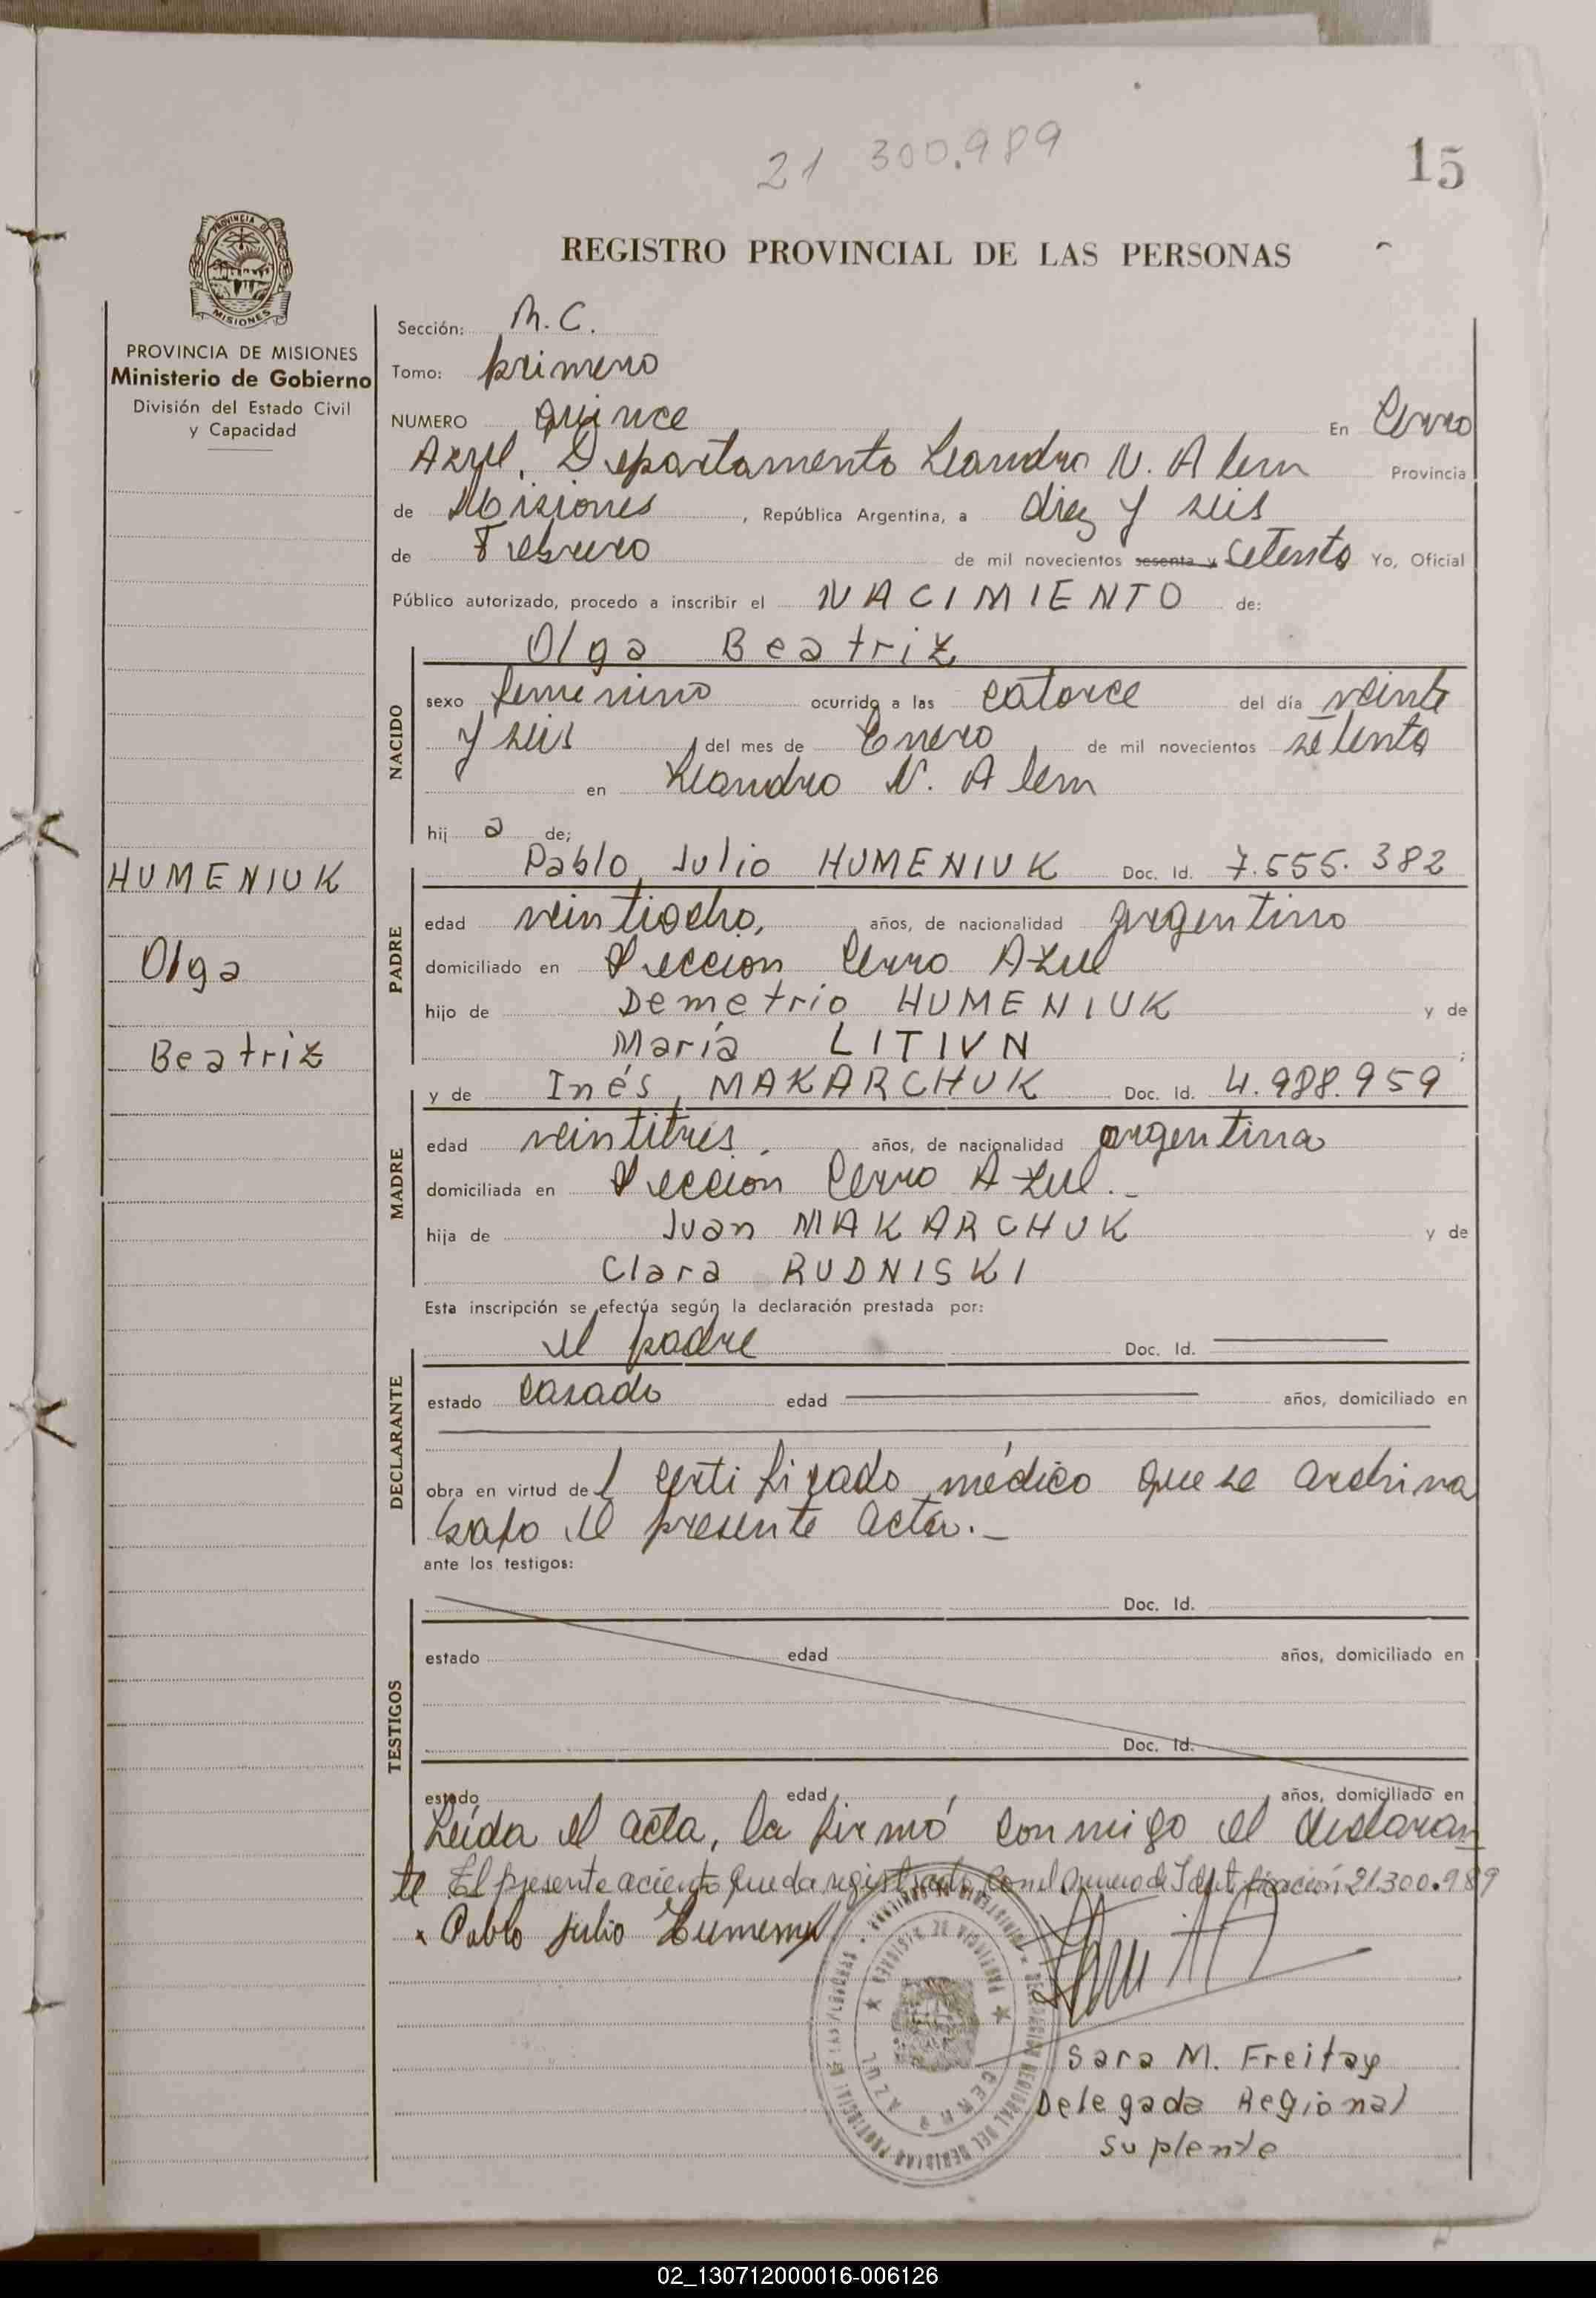 21 300.989
15
REGISTRO PROVINCIAL DE LAS PERSONAS
PROVINCIA
MISIONES
PROVINCIA DE MISIONES
Ministerio de Gobierno
División del Estado Civil
y Capacidad
HUMENIUK
Olga
Beatriz
Sección: N. C.
Tomo: primero
NUMERO quince En Cerro
Azul, Departamento Leandro N. Alem Provincia
de Misiones , República Argentina, a diez y seis
de Febrero de mil novecientos sesenta y setenta Yo, Oficial
Público autorizado, procedo a inscribir el NACIMIENTO de:
NACIDO
Olga Beatriz
sexo femenino ocurrido a las catorce del día veinte
y seis del mes de Enero de mil novecientos setenta
en Leandro N. Alem
hij a de;
PADRE
Pablo Julio HUMENIUK Doc. Id. 7.555.382
edad veintiocho, años, de nacionalidad argentino
domiciliado en Seccion Cerro Azul
hijo de Demetrio HUMENIUK y de
María LITIVN ;
y de Inés MAKARCHUK Doc. Id. 4.988.959
MADRE
edad veintitres, años, de nacionalidad argentina
domiciliada en Sección Cerro Azul.-
hija de Juan MAKARCHUK y de
Clara RUDNISKI
Esta inscripción se efectúa según la declaración prestada por:
DECLARANTE
el padre Doc. Id.
estado casado edad años, domiciliado en
obra en virtud del certificado médico que se archiva
bajo el presente acta.-
ante los testigos:
TESTIGOS
Doc. Id.
estado edad años, domiciliado en
Doc. Id.
estado edad años, domiciliado en
Leída el acta, la firmó conmigo el declaran
te El presente aciento queda registrado con el Numero de Identificación 21.300.989
x Pablo Julio Humeniuk
PROVINCIA DE MISIONES
CERRO AZUL
DELEGACION REGIONAL DEL REGISTRO PROVINCIAL DE LAS PERSONAS
Sara M. Freitag
Delegada Regional
suplente
02_130712000016-006126